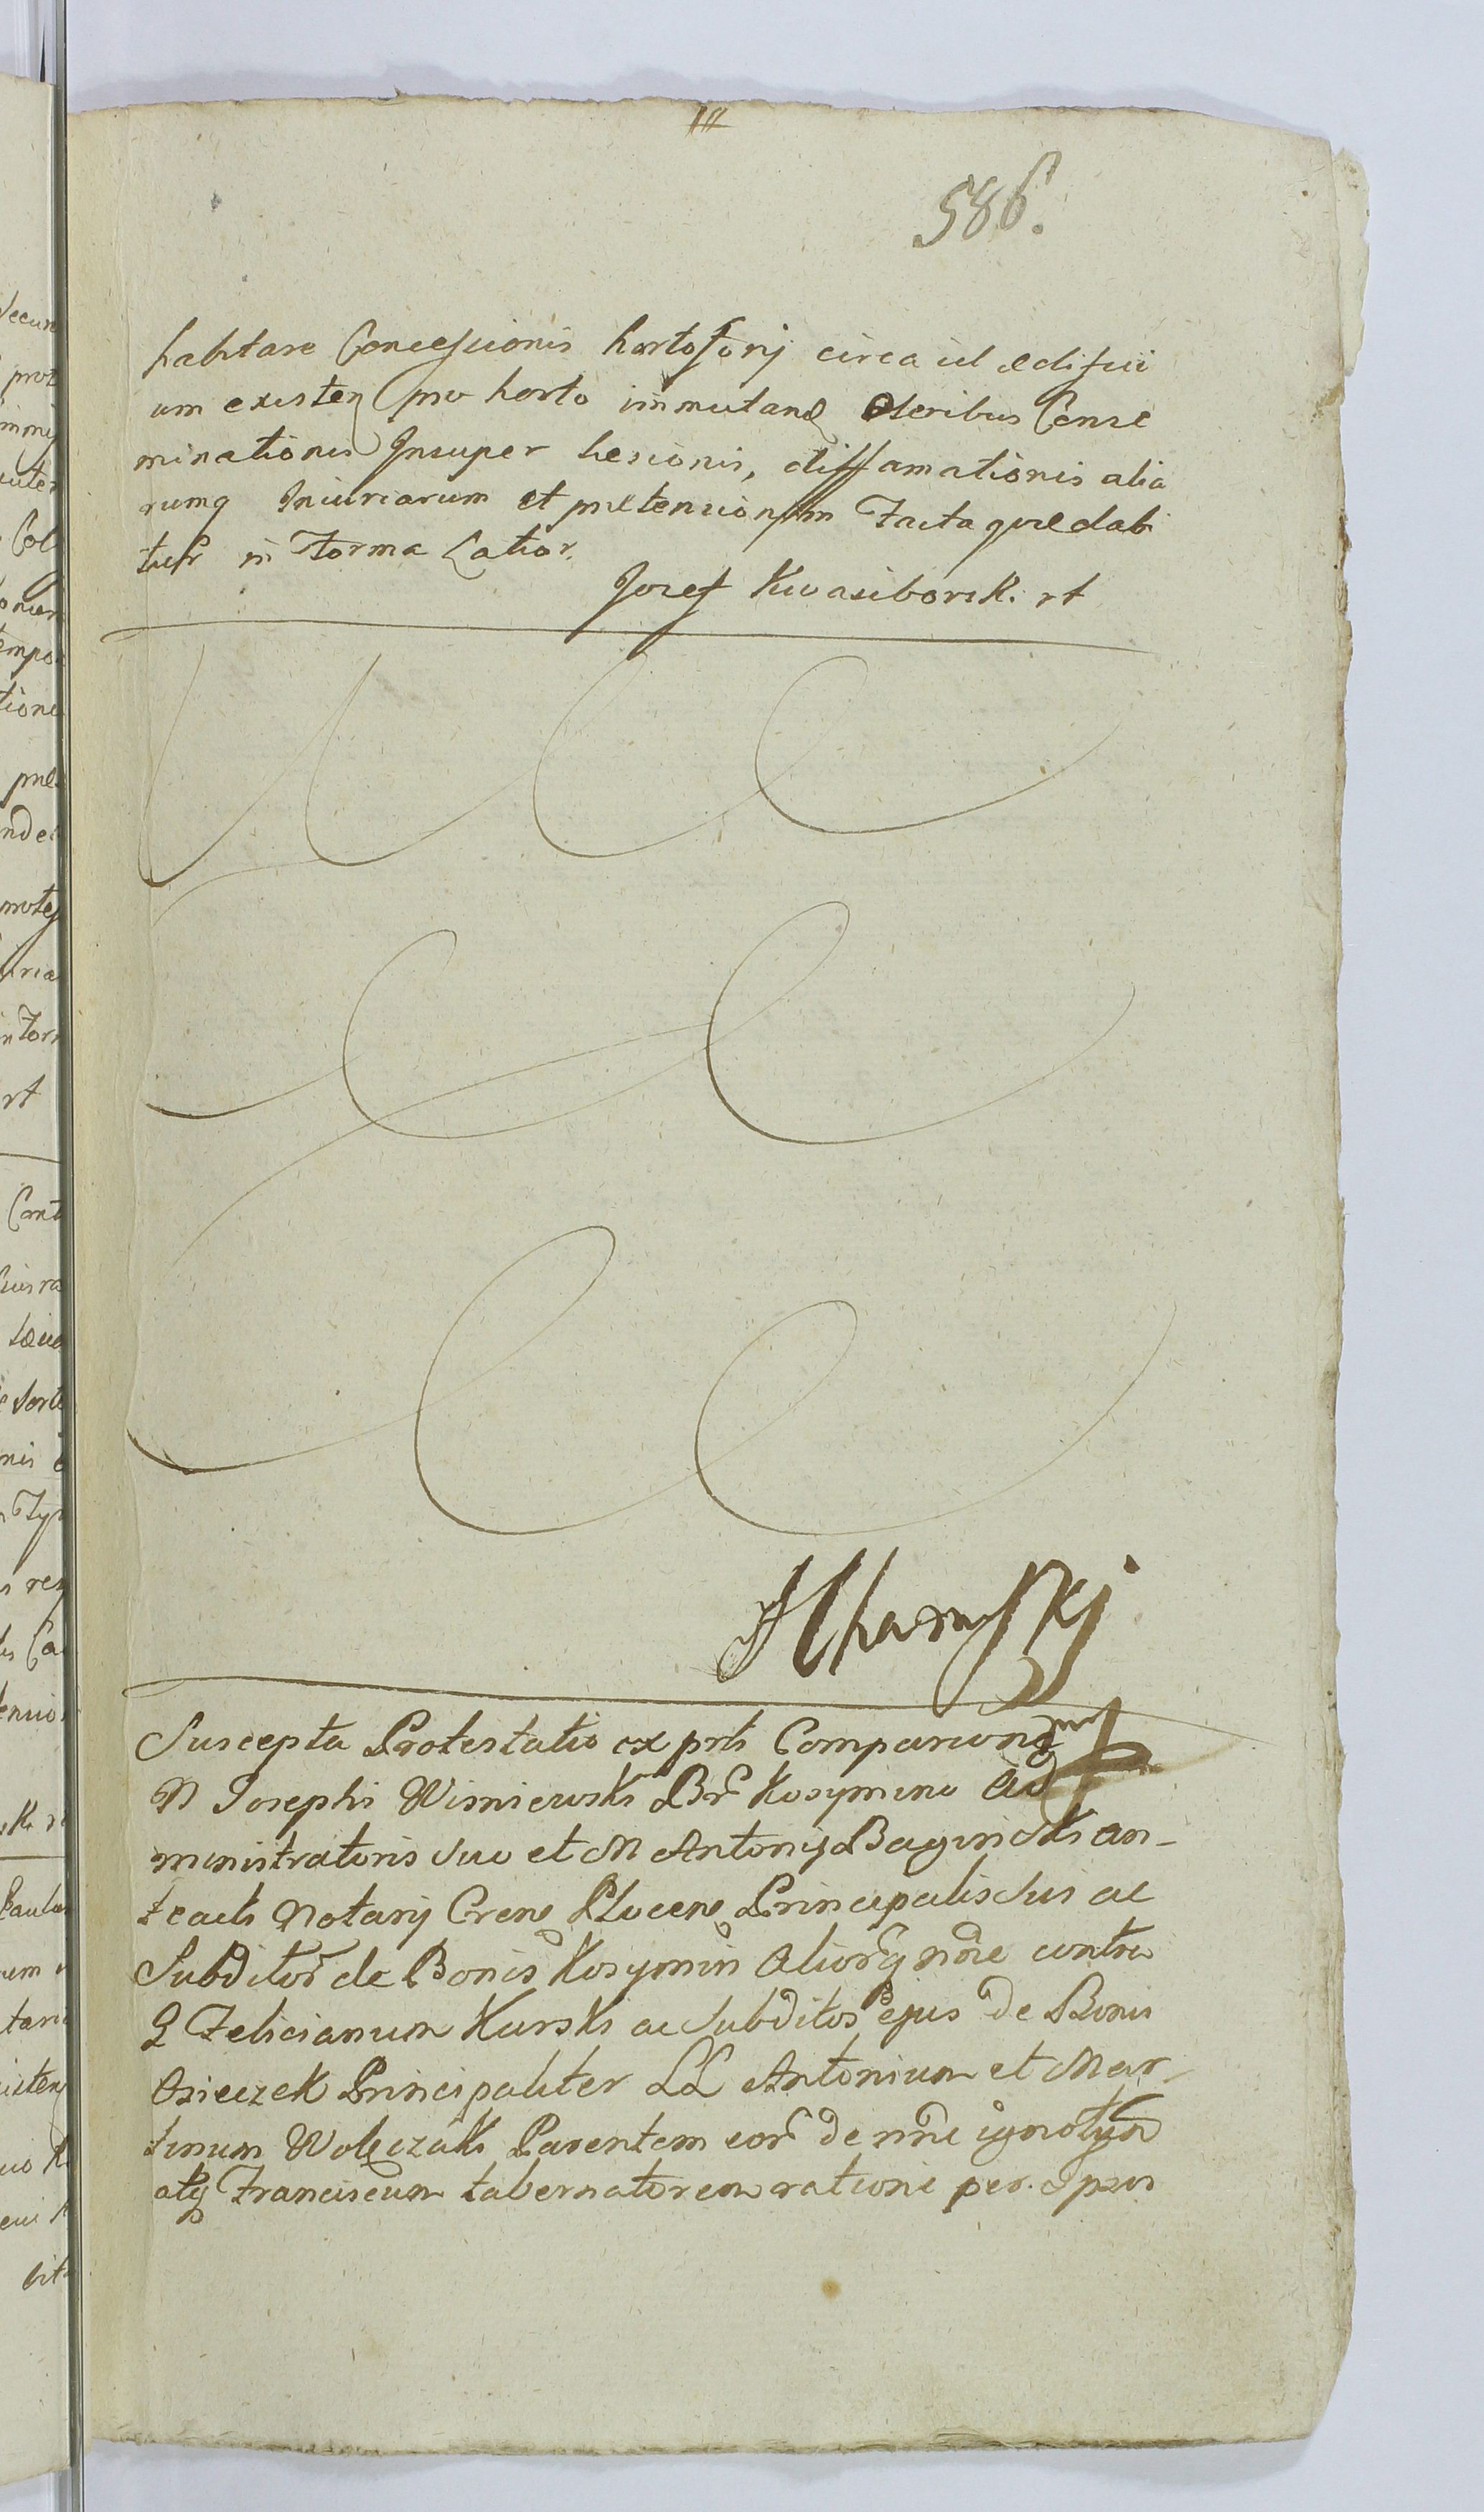 586.
habitare Concessionis hortosorij circa id ædifici
um existen pro horto immutand Oleribus Conse
minationis Insuper lesionis, diffamationis alia
rumq Iniuriarum et prætensionum Facta quæ dabi
tur in Forma Latior.
Jozef Kwasiborsk. rt
Suscepta Protestatio ex prts Comparicon
N Josephi Wisniewski Br Kosymino Ad
ministratoris suo et M Antonij Baginski an-
teacts Notarij Crens Plocens Principalis sui ac
Subditor de Bonis Kosymin Aliorq nõie contra
G Felicianum Kurski ac Subditos ejus de Bonis
Osieczek Principaliter LL Antonium et Mar-
tinum Woleczaki Parentem eor de nõie ignotum
atq Franciscum tabernatorem rationi per Ipsos